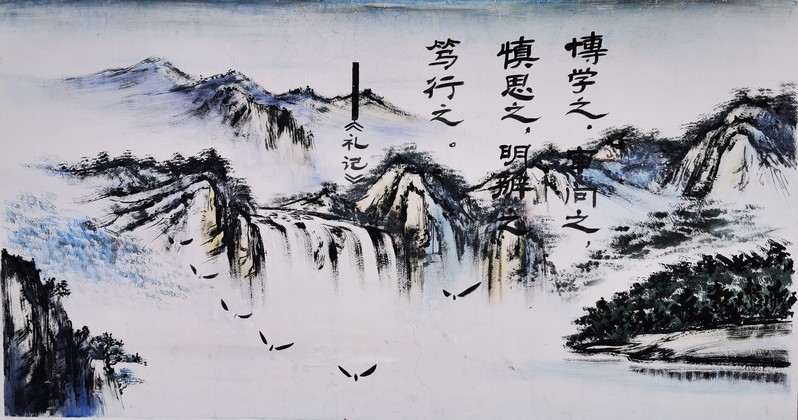 博学之，审问之，
慎思之，明辨之，
笃行之。
——《礼记》